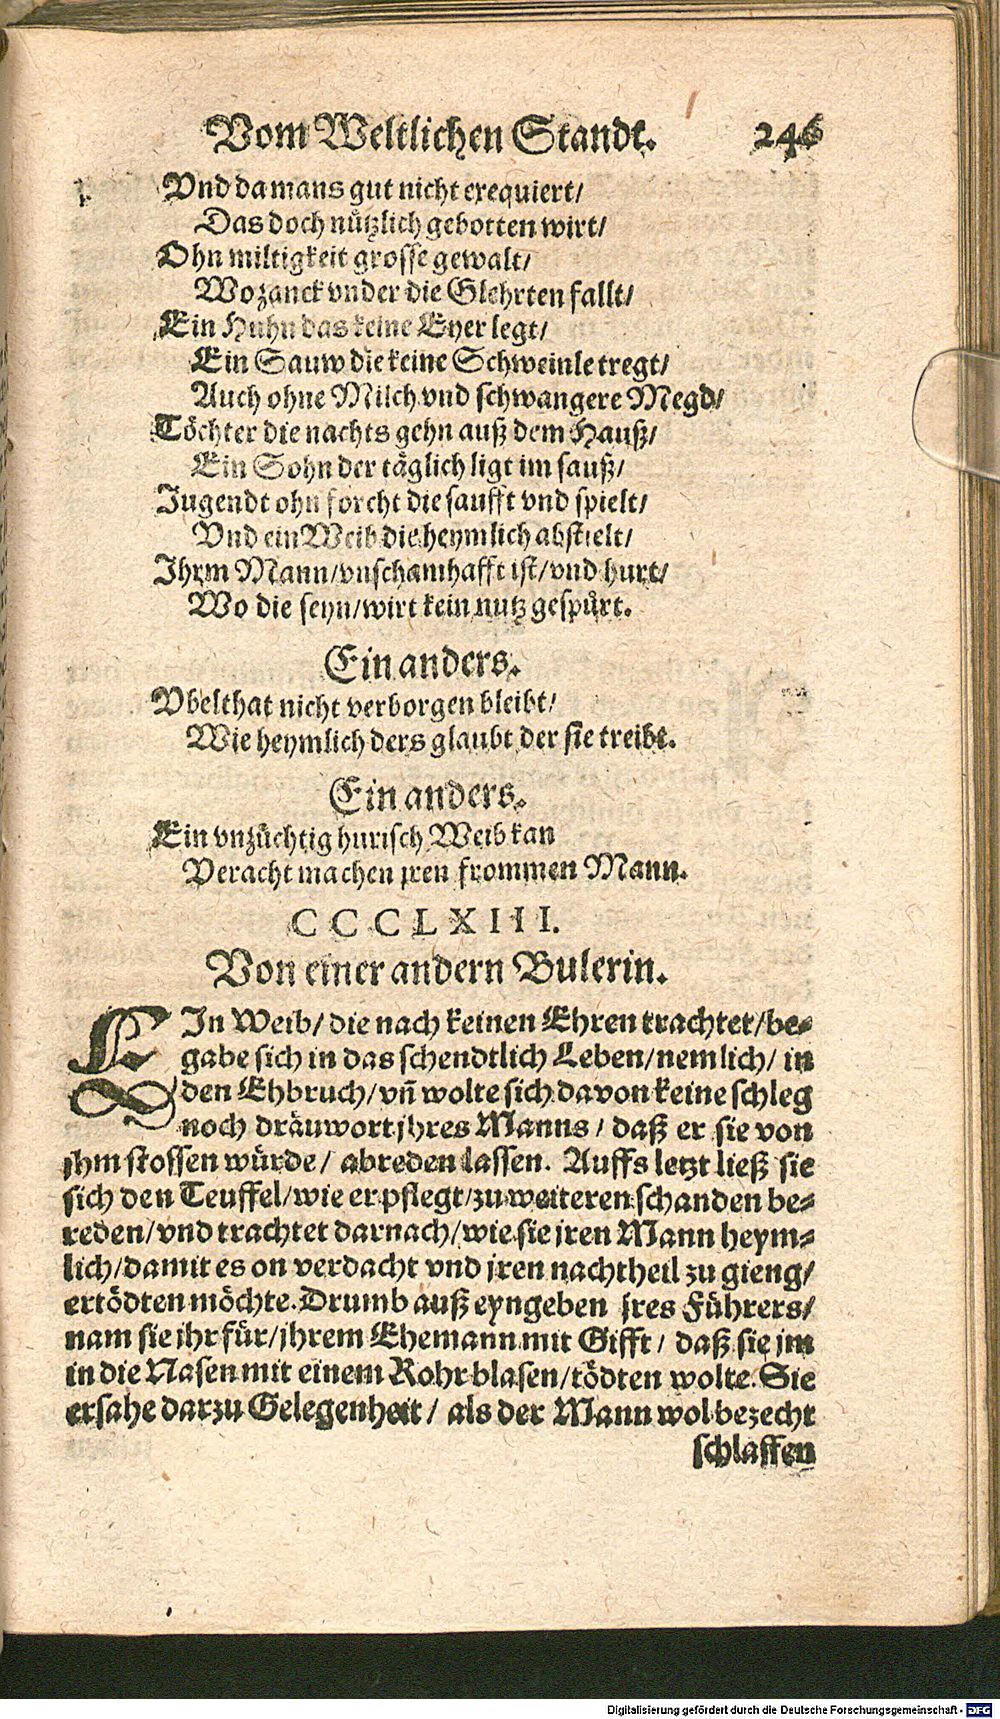 Vom Weltlichen Standt. 246
Vnd da mans gut nicht exequiert/
Das doch nützlich gebotten wirt/
Ohn miltigkeit grosse gewalt/
Wo zanck vnder die Glehrten fallt/
Ein Huhn das keine Eyer legt/
Ein Sauw die keine Schweinle tregt/
Auch ohne Milch vnd schwangere Megd/
Töchter die nachts gehn auß dem Hauß/
Ein Sohn der täglich ligt im sauß/
Jugendt ohn forcht die saufft vnd spielt/
Vnd ein Weib die heymlich abstielt/
Jhrm Mann/vnschamhafft ist/vnd hurt/
Wo die seyn/wirt kein nutz gespürt.
Ein anders.
Vbelthat nicht verborgen bleibt/
Wie heymlich ders glaubt der sie treibt.
Ein anders.
Ein vnzüchtig hurisch Weib kan
Veracht machen jren frommen Mann.
CCCCLXIII.
Von einer andern Bulerin.
EJn Weib/ die nach keinen Ehren trachtet/be-
gabe sich in das schendtlich Leben/nemlich/ in
den Ehbruch/vn̄ wolte sich davon keine schleg
noch dräuwort jhres Manns / daß er sie von
jhm stossen würde/ abreden lassen. Auffs letzt ließ sie
sich den Teuffel/wie er pflegt/zu weiteren schanden be-
reden/vnd trachtet darnach/wie sie jren Mann heym-
lich/damit es on verdacht vnd jren nachtheil zu gieng/
ertödten möchte. Drumb auß eyngeben jres Führers/
nam sie jhr für/jhrem Ehemann mit Gifft / daß sie jm
in die Nasen mit einem Rohr blasen/tödten wolte. Sie
ersahe darzu Gelegenheit / als der Mann wol bezecht
schlaffen
Digitalisierung gefördert durch die Deutsche Forschungsgemeinschaft - DFG